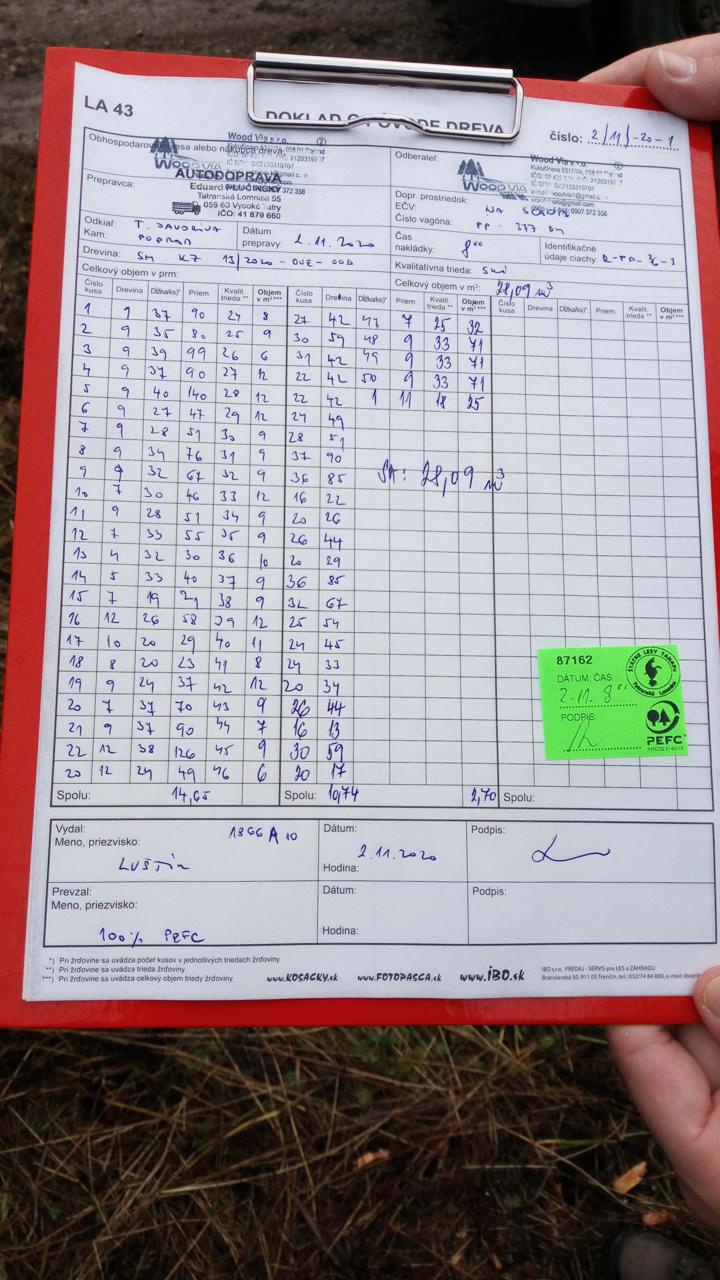 LA 43
DOKLAD O PÔVODE DREVA
číslo: 2/11/-20-1
Wood Via s.r.o.
WOODVIA
AUTODOPRAVA
Eduard PLUČINSKÝ
Tatranská Lomnica 55
059 60 Vysoké Tatry
IČO: 41 879 660
Prepravca:
Odberateľ:
Wood Via s.r.o.
WOODVIA
Dopr. prostriedok:
EČV:
Číslo vagóna:
PP - 377
Odkiaľ: T. JAVORINA
Kam: POPRAD
Dátum prepravy: 2.11.2020
Čas nakládky: 8⁰⁰
Identifikačné údaje ciachy:
Drevina: SM KZ 13/2020-OUE-OOD
Kvalitatívna trieda:
Celkový objem v prm:
Celkový objem v m³: 28,09 m³
Číslo kusa Drevina Dĺžka/ks)* Priem. Kvalit. trieda ** Objem v m³ *** Číslo kusa Drevina Dĺžka/ks)* Priem. Kvalit. trieda ** Objem v m³ *** Číslo kusa Drevina Dĺžka/ks)* Priem. Kvalit. trieda ** Objem v m³ ***
1 1 37 90 24 8 27 42 47 7 25 32
2 9 35 80 25 9 30 59 48 9 33 71
3 9 39 99 26 6 31 42 49 9 33 71
4 9 37 90 27 12 22 42 50 9 33 71
5 9 40 140 28 12 22 42 1 11 18 25
6 9 27 47 29 12 24 49
7 9 28 51 30 9 28 51
8 9 34 76 31 9 37 90
9 9 32 67 32 9 36 85
SM: 28,09 m³
10 7 30 46 33 12 16 22
11 9 28 51 34 9 20 26
12 7 33 55 35 9 26 44
13 4 32 30 36 10 20 29
14 5 33 40 37 9 36 85
15 7 19 21 38 9 32 67
16 12 26 58 39 12 25 54
17 10 20 29 40 11 24 45
18 8 20 23 41 8 24 33
19 9 24 37 42 12 20 34
20 7 37 70 43 9 26 44
21 9 37 90 44 7 16 13
22 12 38 126 45 9 30 59
20 12 24 49 46 6 20 17
Spolu: 14,65 Spolu: 10,74 2,70 Spolu:
87162
DÁTUM, ČAS
2.11. 8⁰⁰
PODPIS:
ŠTÁTNE LESY TANAPU
Tatranská Lomnica
PEFC
Vydal:
Meno, priezvisko:
1366 A 10
LUŠTIN
Dátum:
2.11.2020
Hodina:
Podpis:
Prevzal:
Meno, priezvisko:
100% PEFC
Dátum:
Hodina:
Podpis:
*) Pri žrďovine sa uvádza počet kusov v jednotlivých triedach žrďoviny.
**) Pri žrďovine sa uvádza trieda žrďoviny.
***) Pri žrďovine sa uvádza celkový objem triedy žrďoviny
www.KOSACKY.sk www.FOTOPASCA.sk www.iBO.sk
IBO s.r.o. PREDAJ - SERVIS pre LES a ZÁHRADU
Bratislavská 50, 911 05 Trenčín, tel.: 032/74 84 000, e-mail: